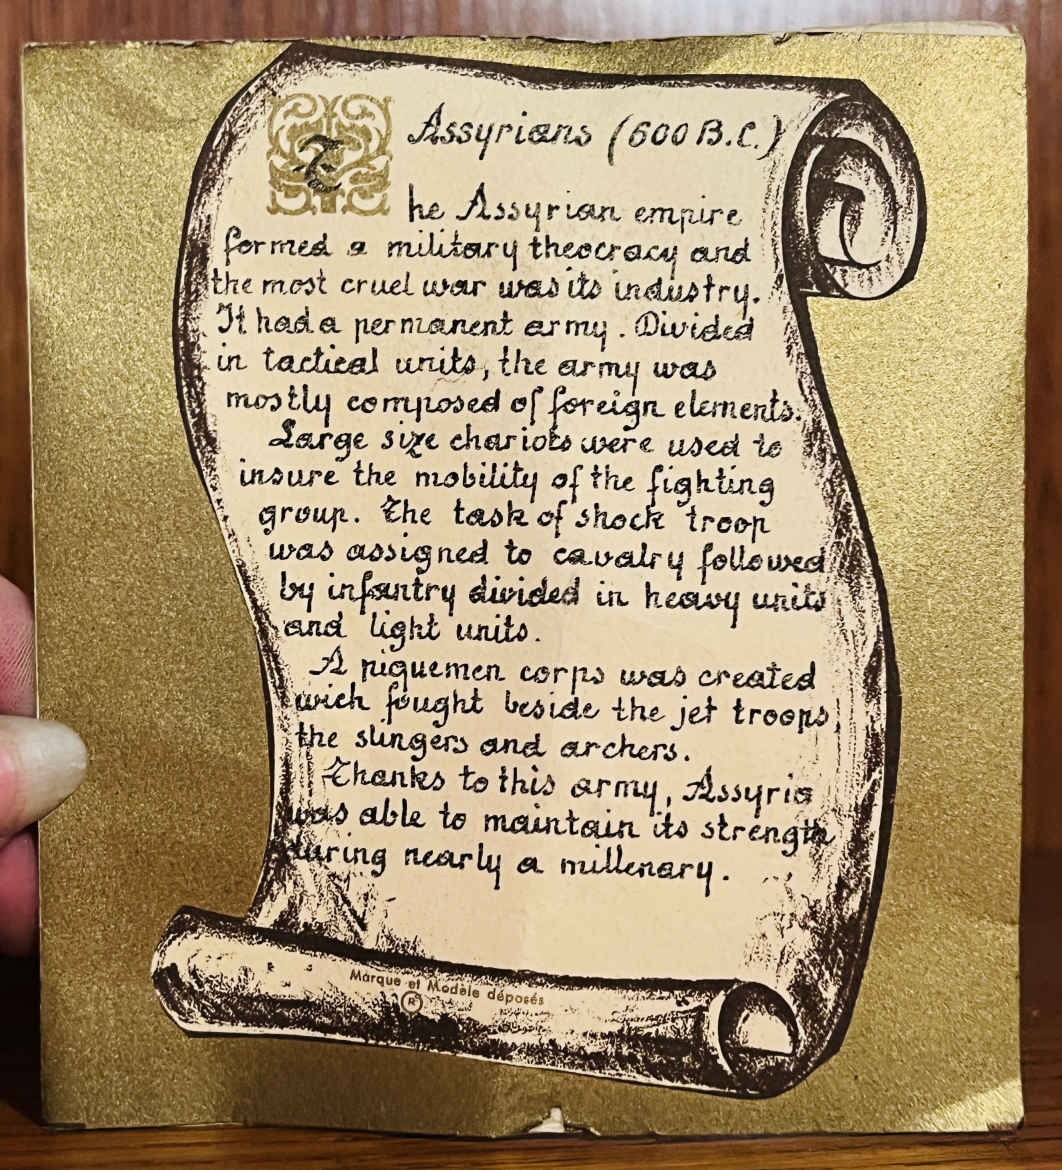 Assyrians (600 B.C.)
The Assyrian empire
formed a military theocracy and
the most cruel war was its industry.
It had a permanent army. Divided
in tactical units, the army was
mostly composed of foreign elements.
Large size chariots were used to
insure the mobility of the fighting
group. The task of shock troop
was assigned to cavalry followed
by infantry divided in heavy units
and light units.
A piquemen corps was created
wich fought beside the jet troops,
the slingers and archers.
Thanks to this army, Assyria
was able to maintain its strength
during nearly a millenary.
Marque et Modèle déposés
®